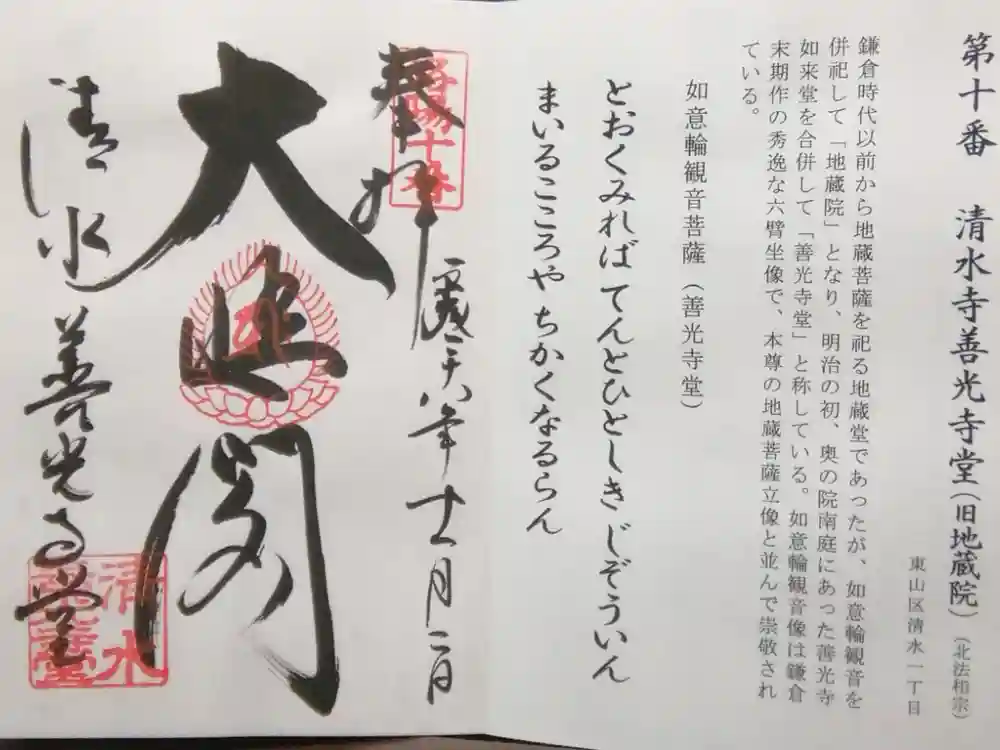 第十番 清水寺善光寺堂(旧地蔵院)(北法相宗)
東山区清水一丁目
鎌倉時代以前から地蔵菩薩を祀る地蔵堂であったが、如意輪観音を
併祀して「地蔵院」となり、明治の初、奥の院南庭にあった善光寺
如来堂を合併して「善光寺堂」と称している。如意輪観音像は鎌倉
末期作の秀逸な六臂坐像で、本尊の地蔵菩薩立像と並んで崇敬され
ている。
如意輪観音菩薩(善光寺堂)
とおくみれば てんとひとしき じぞういん
まいるこころや ちかくなるらん
奉拝 平成二十八年十一月二日
洛陽十番
大悲閣
清水 善光寺堂
清水